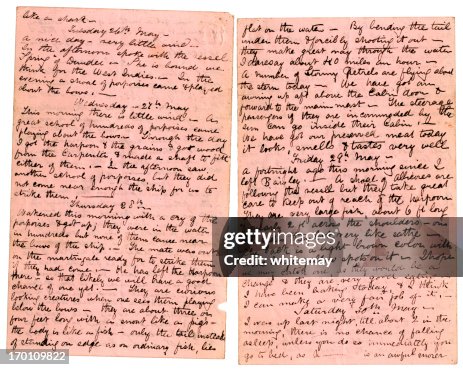 like a shark -
Tuesday 26th May -
A nice day - very little wind -
In the afternoon spoke with the vessel
"Spring" of Dundee - She is bound we
think for the West Indies. - In the
evening a shoal of porpoises came & played
about the bows. -
Wednesday - 27th May
This morning there is little wind - A
great school of hundreds of porpoises came
playing about the bows - Through the day
I got the harpoon & the grains & got wood
from the Carpenter & made a shaft to fit
either of them. - In the afternoon saw
another school of porpoises but they did
not come near enough the ship for us to
strike them. -
Thursday 28th -
Wakened this morning with a cry of the
porpoises & got up, they were in the water
in hundreds - of them came near
the bows of the ship - The mate was out
on the martingale ready for to strike them
they had come. - He has left the harpoon
there & so that likely we will have a good
chance of one yet - they are curious
looking creatures when one sees them playing
below the bows - They are about three or
four feet long with a snout like a pig -
the body is like a fish - only the tail instead
of standing on edge as an ordinary fish, lies
flat on the water - By bending the tail
under them & forcibly shooting it out -
they make great way through the water
I daresay about 40 miles an hour -
A number of stormy Petrels are flying about
the stern today - We have got an
awning up aft above the Cabin door &
forward to the mainmast - The steerage
passengers if they are incommoded by the
sun can go inside their Cabin -
We have got our preserved meat today
it looks, smells & tastes very well
Friday 29th May -
A fortnight ago this morning since I
left - A shoal of albicores are
following the vessel but they take great
care to keep out of reach of the harpoon
They are very large fish, about 6 ft long
& 2 d across the shoulders - on
very like satin
brown color with
spots on it - I hope
may catch one they would be a
change & they are very
I have been today & I think
I can make a very fair job of it. -
Saturday 30th May -
I was up last night till about 2 in the
morning, there is no chance of falling
asleep, unless you do so immediately you
go to bed, as a is an awful snorer
iStock
Credit: whitemay
170109822